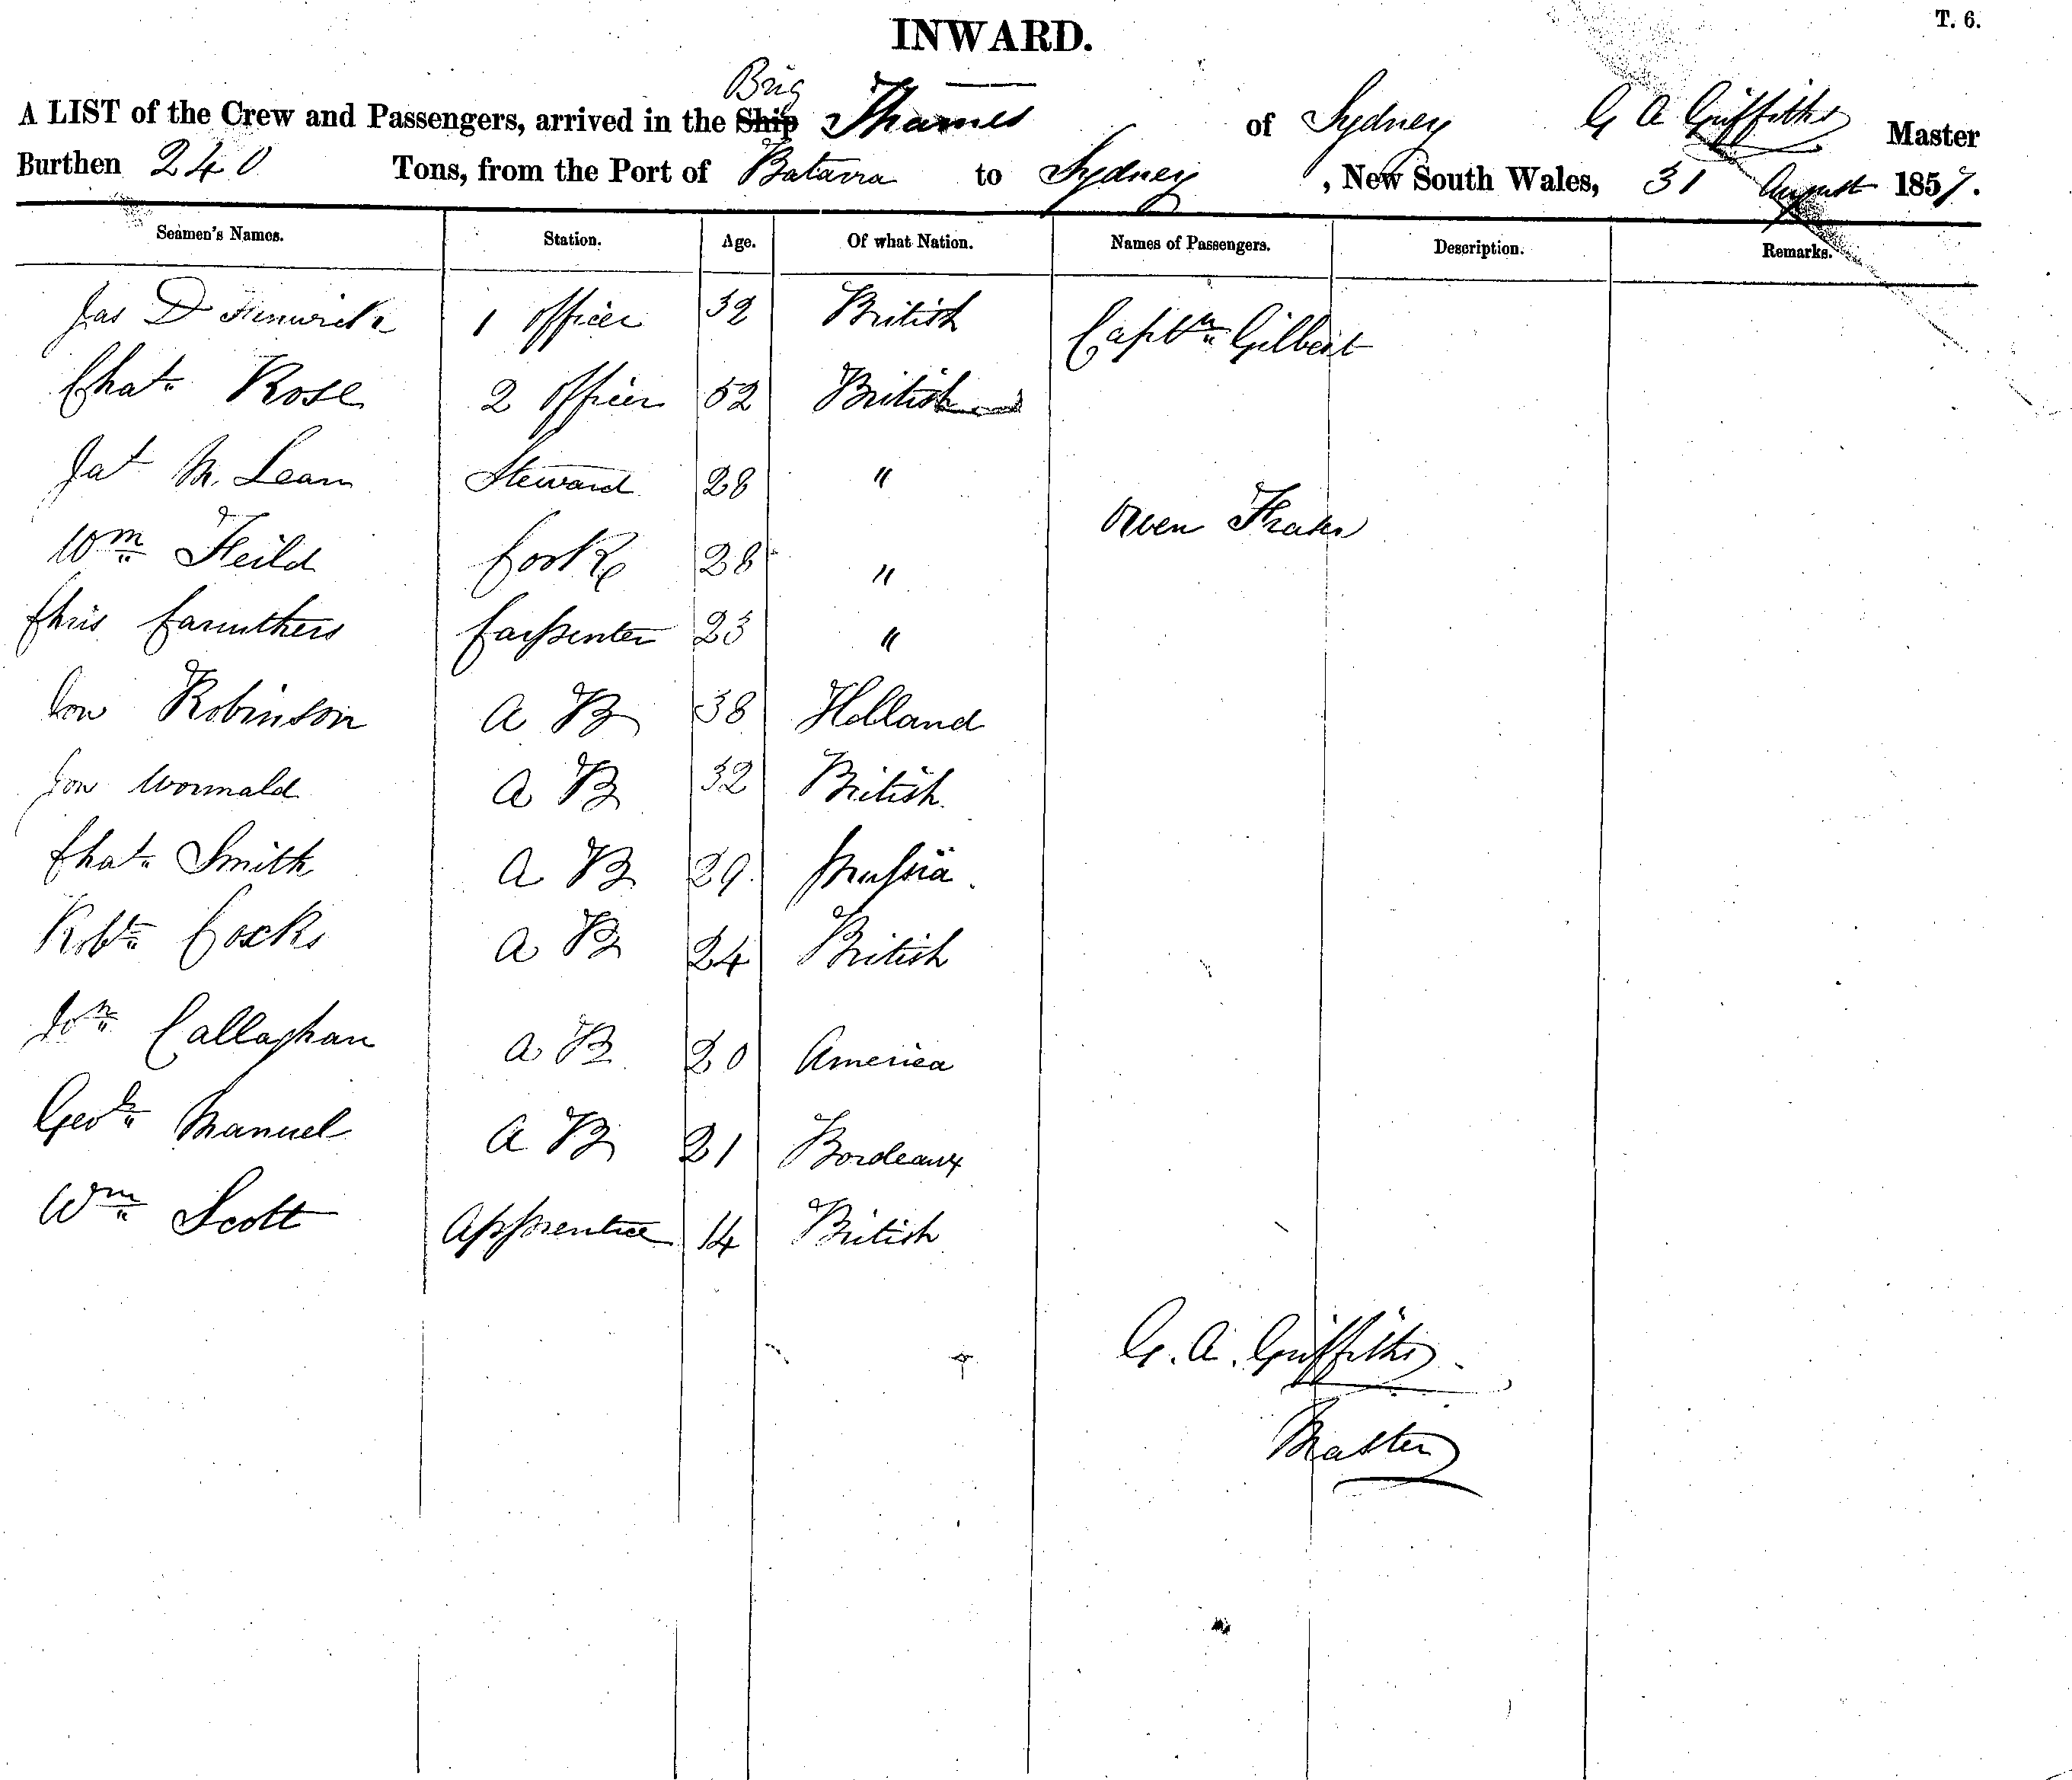 T. 6.
INWARD.
Brig
A LIST of the Crew and Passengers, arrived in the Ship Thames of Sydney G A Griffiths Master
Burthen 240 Tons, from the Port of Batavia to Sydney, New South Wales, 31 August 1857.
Seamen's Names. Station. Age. Of what Nation. Names of Passengers. Description. Remarks.
Jas D Fenwick 1 officer 32 British Captn Gilbert
Chas Rose 2 officer 52 British
Jas M. Lean Steward 28 "
Owen
Wm Feild Cook 28 "
Chris Caruthers Carpenter 23 "
Jon Robinson A B 38 Holland
Jon Wormald A B 32 British
Chas Smith A B 29 Prussia
Robt Cocks A B 24 British
Jon Callaghan A B 20 America
Geoe Manuel A B 21 Bordeaux
Wm Scott Apprentice 14 British
G. A. Griffiths
Master